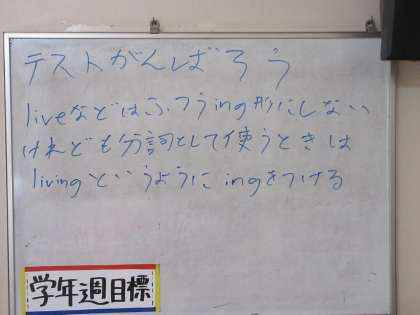 テストがんばろう
liveなどはふつうing形にしない
けれども分詞として使うときは
livingというようにingをつける
学年週目標